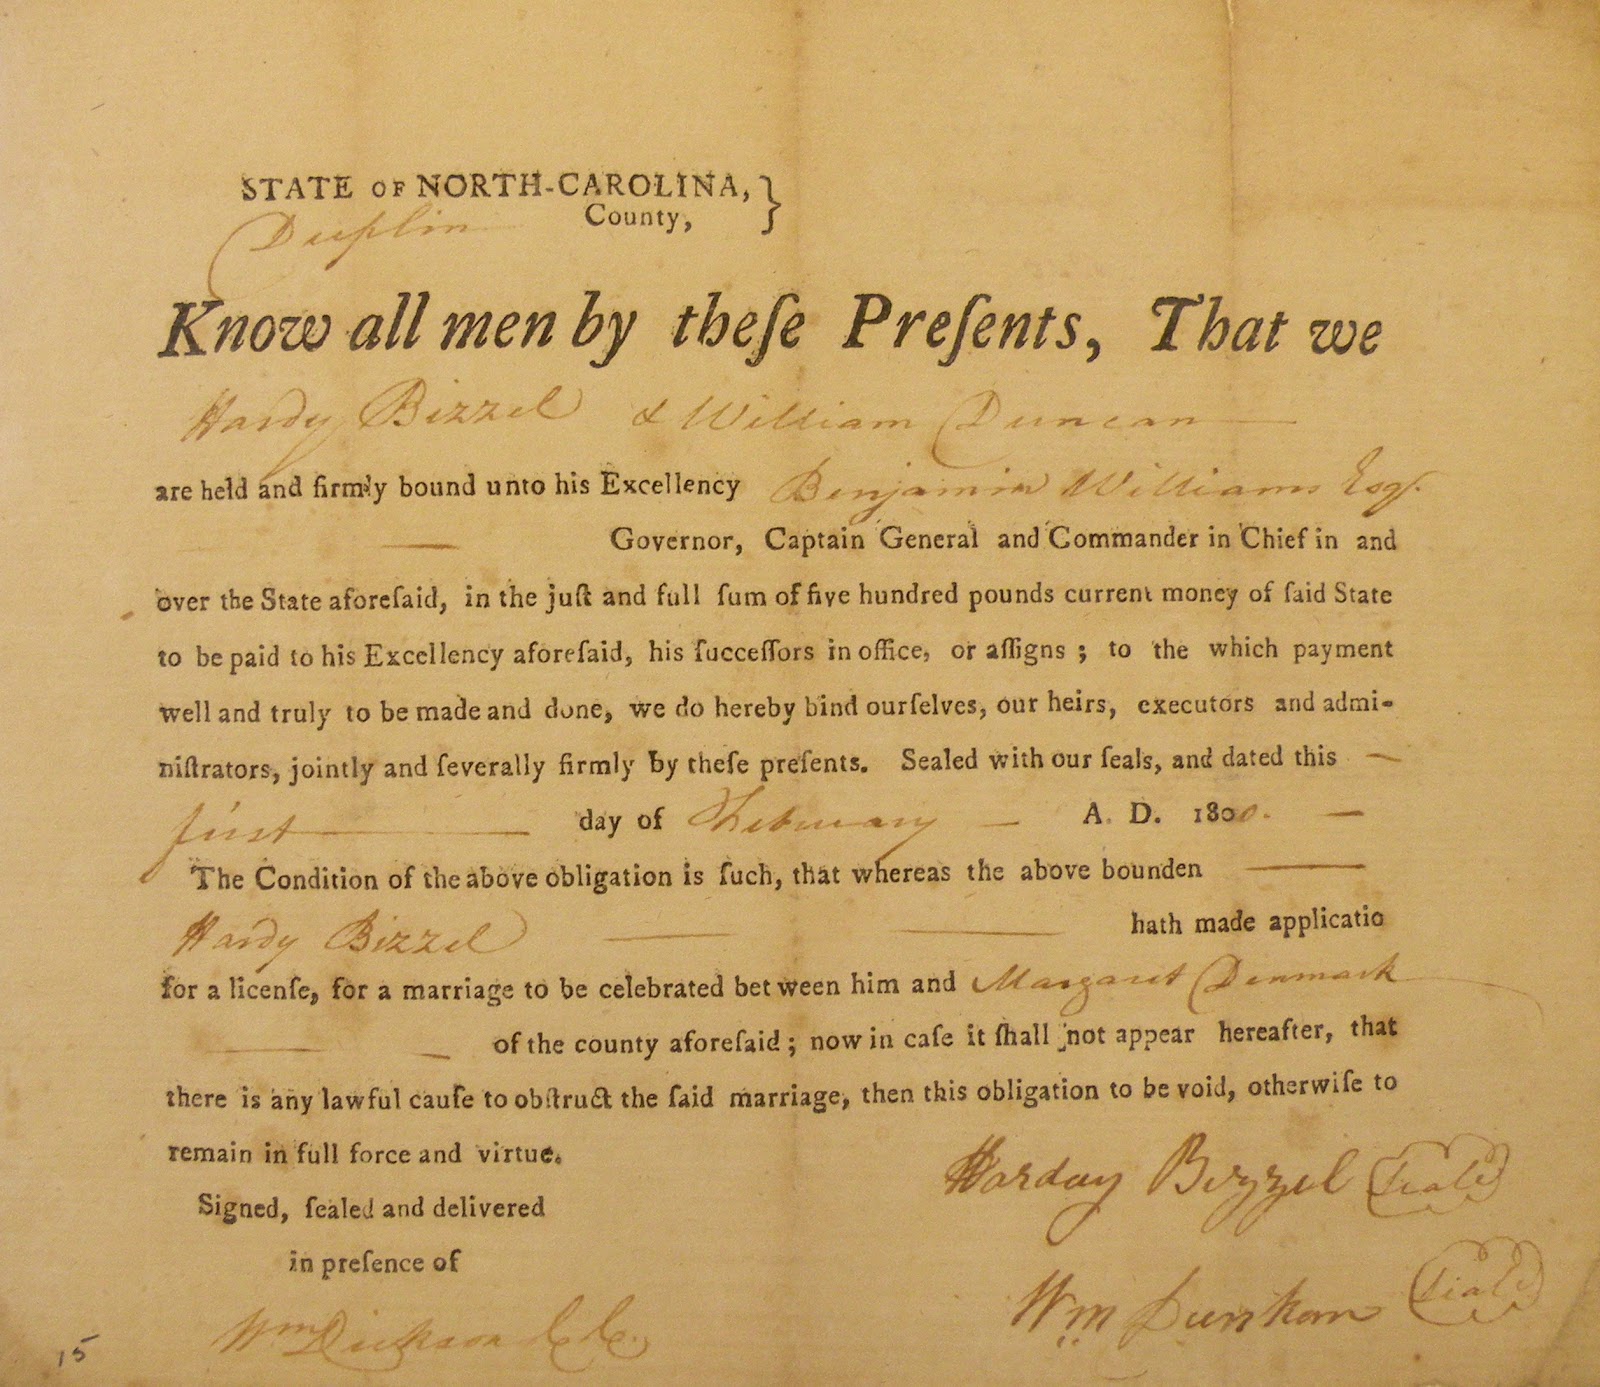 STATE OF NORTH-CAROLINA, }
Duplin County,
Know all men by theſe Preſents, That we
Hardy Bizzel & William Duncan
are held and firmly bound unto his Excellency Benjamin Williams Esqr.
Governor, Captain General and Commander in Chief in and
over the State aforeſaid, in the juſt and full ſum of five hundred pounds current money of ſaid State
to be paid to his Excellency aforeſaid, his ſucceſſors in office, or aſſigns ; to the which payment
well and truly to be made and done, we do hereby bind ourſelves, our heirs, executors and admi-
niſtrators, jointly and ſeverally firmly by theſe preſents. Sealed with our ſeals, and dated this
first day of February A. D. 1800.
The Condition of the above obligation is ſuch, that whereas the above bounden
Hardy Bizzel hath made applicatio
for a licenſe, for a marriage to be celebrated between him and Margaret Denmark
of the county aforeſaid ; now in caſe it ſhall not appear hereafter, that
there is any lawful cauſe to obſtruct the ſaid marriage, then this obligation to be void, otherwiſe to
remain in full force and virtue.
Harday Bizzel Seale
Signed, ſealed and delivered
in preſence of
Wm Dunkan Seale
Wm Dickson CC.
15